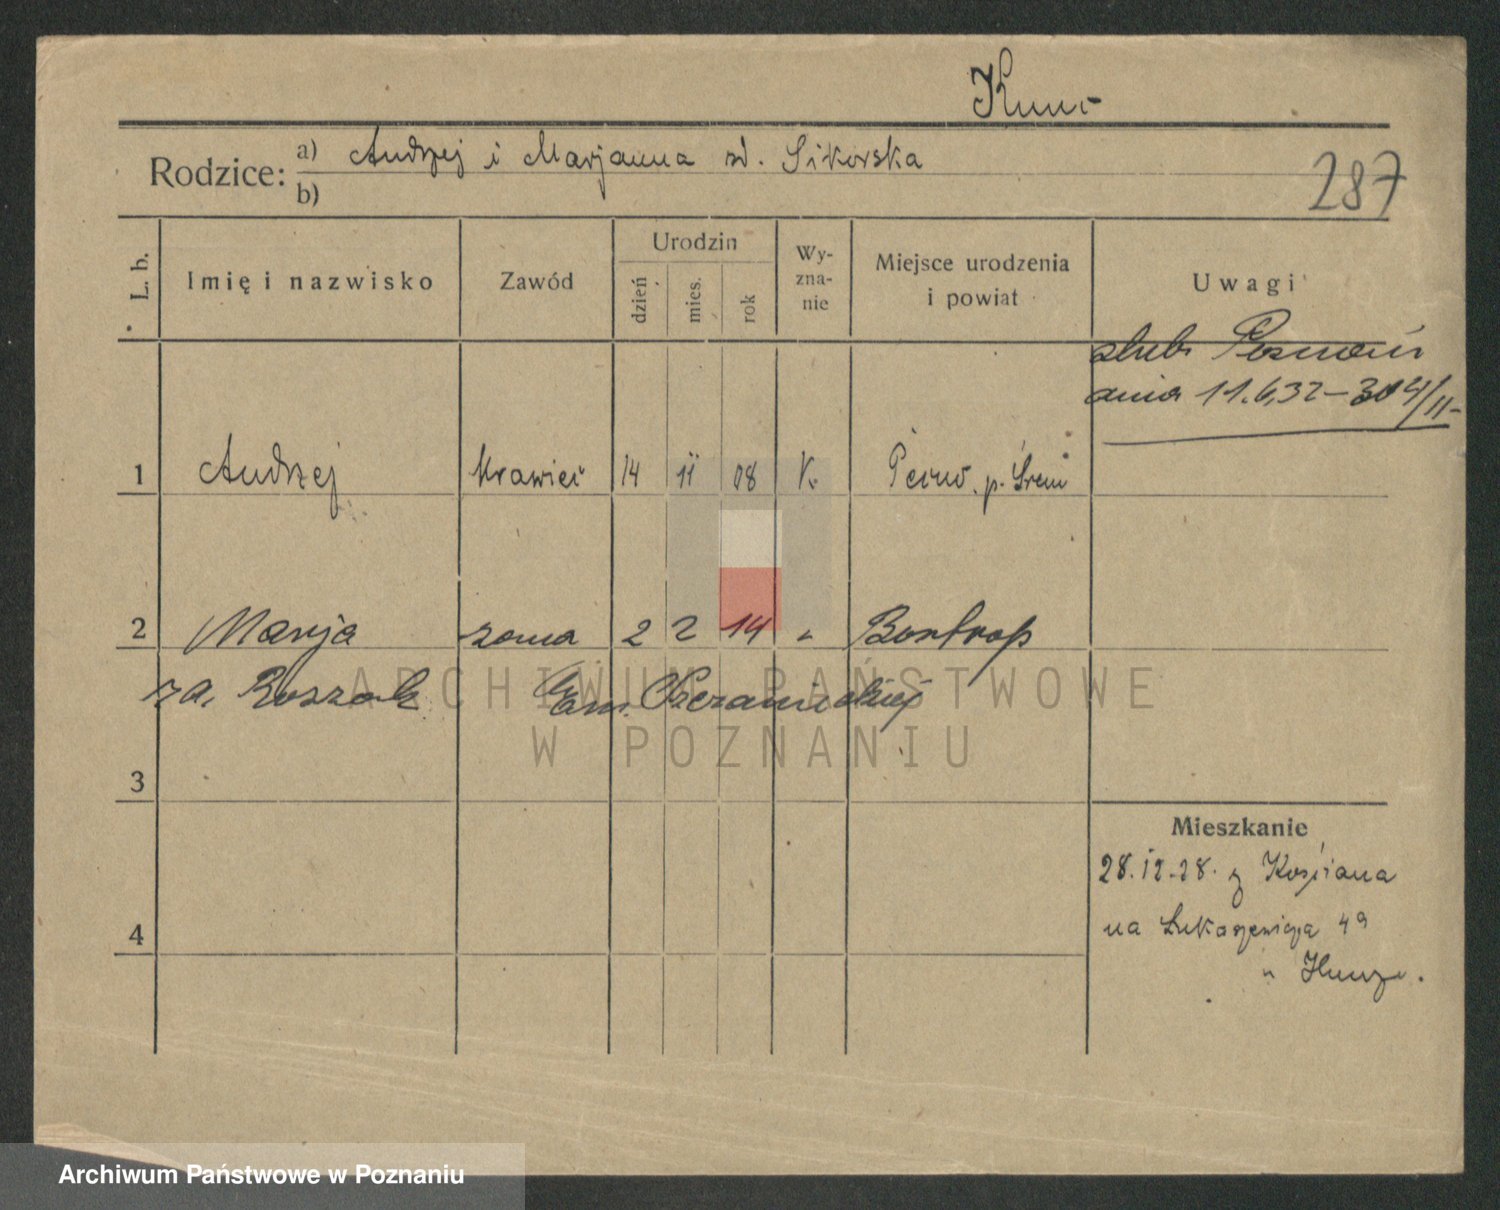 Rodzice: a) Andrzej i Marjanna rd. Sikorska
b)
287
L. b.
Imię i nazwisko
Zawód
Urodzin
dzień
mies.
rok
Wy-
zna-
nie
Miejsce urodzenia
i powiat
Uwagi
slub Poznań
dnia 11.6.32 – 304/II
1 Andrzej krawiec 14 11 08 K. p. Śrem
2 Marja żona 2 2 14 " Bontrop
za. Roszak
3
4
Mieszkanie
28.12.28. z Kościana
na Łukaszewicza 4a
ARCHIWUM PAŃSTWOWE
W POZNANIU
Archiwum Państwowe w Poznaniu